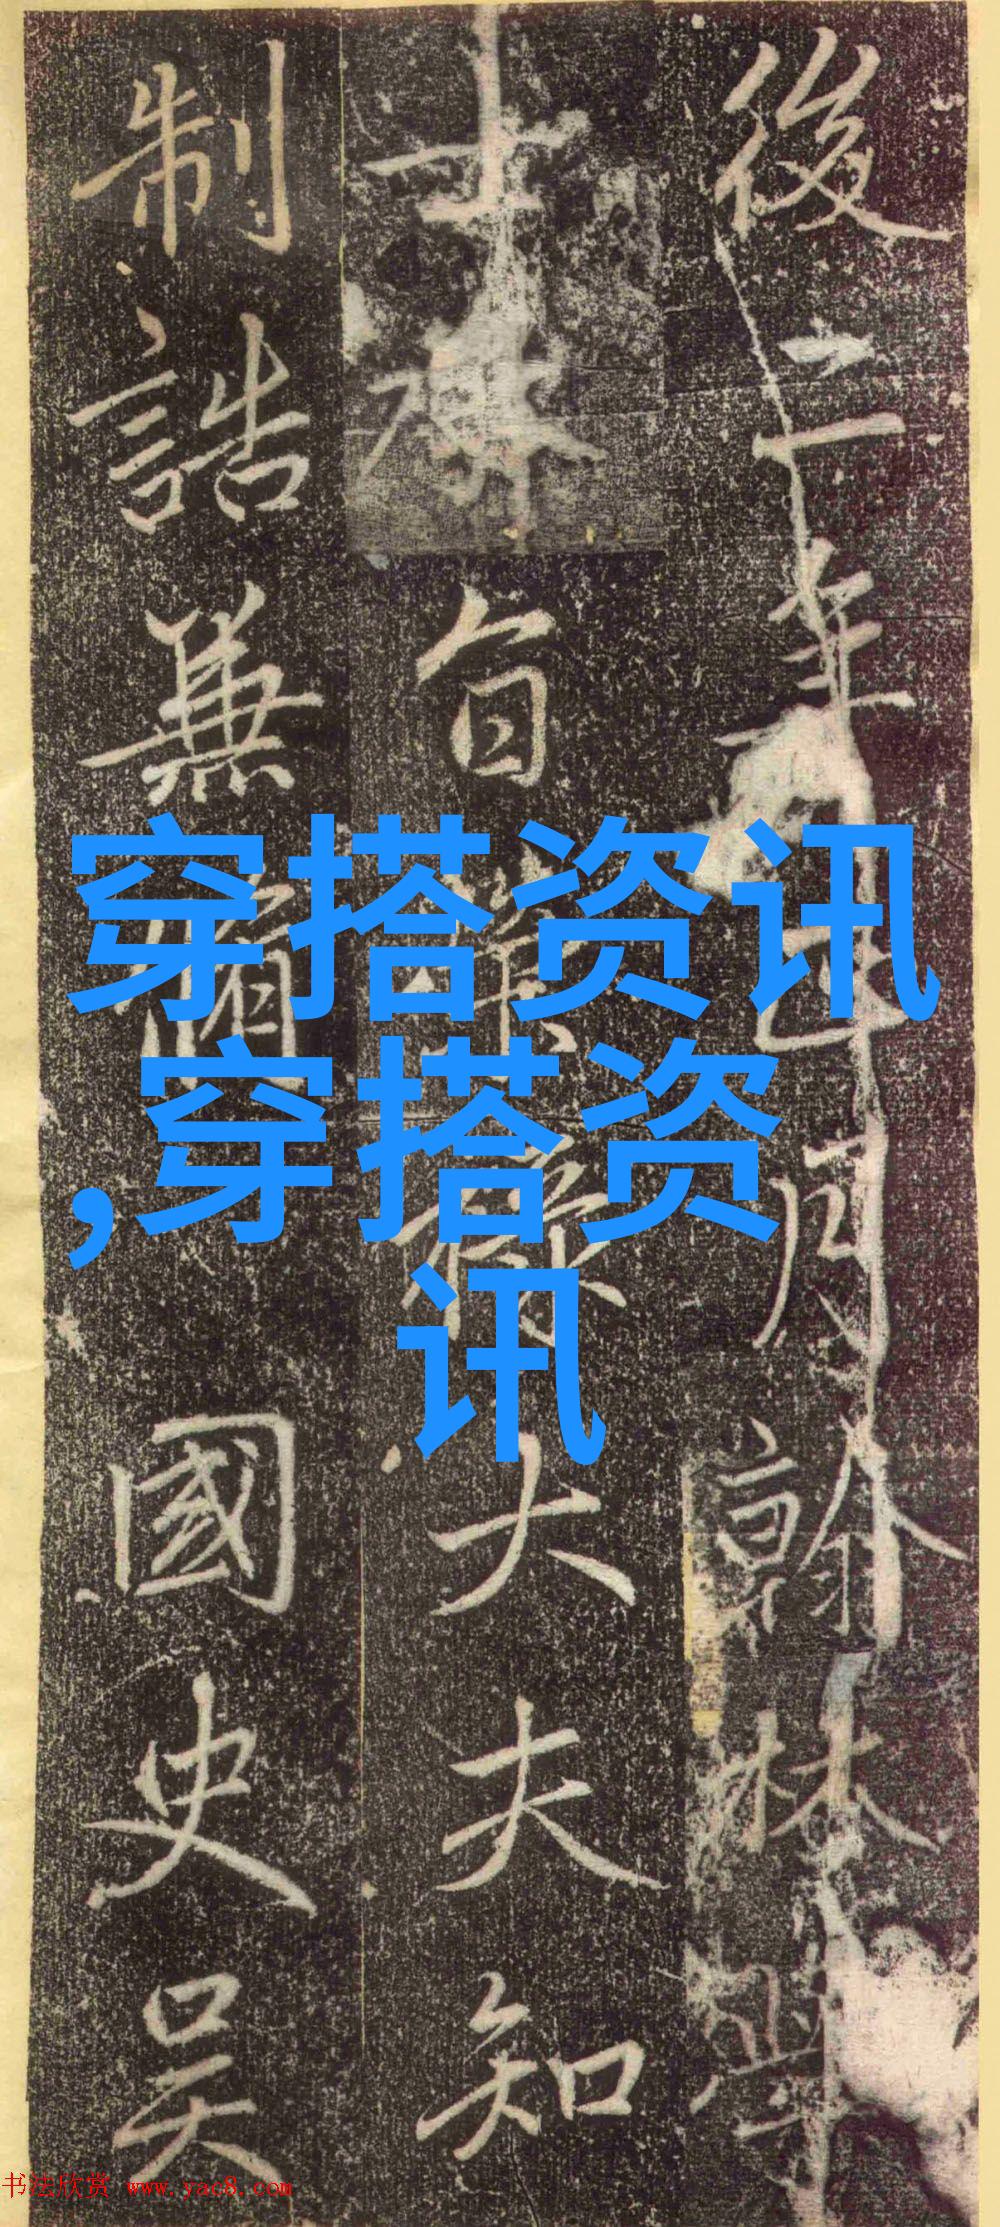 後二年月翰林學
士旨榮祿大夫知
制誥兼脩國史吳
穿搭资讯
,穿搭资
讯
书法欣赏 www.yac8.com